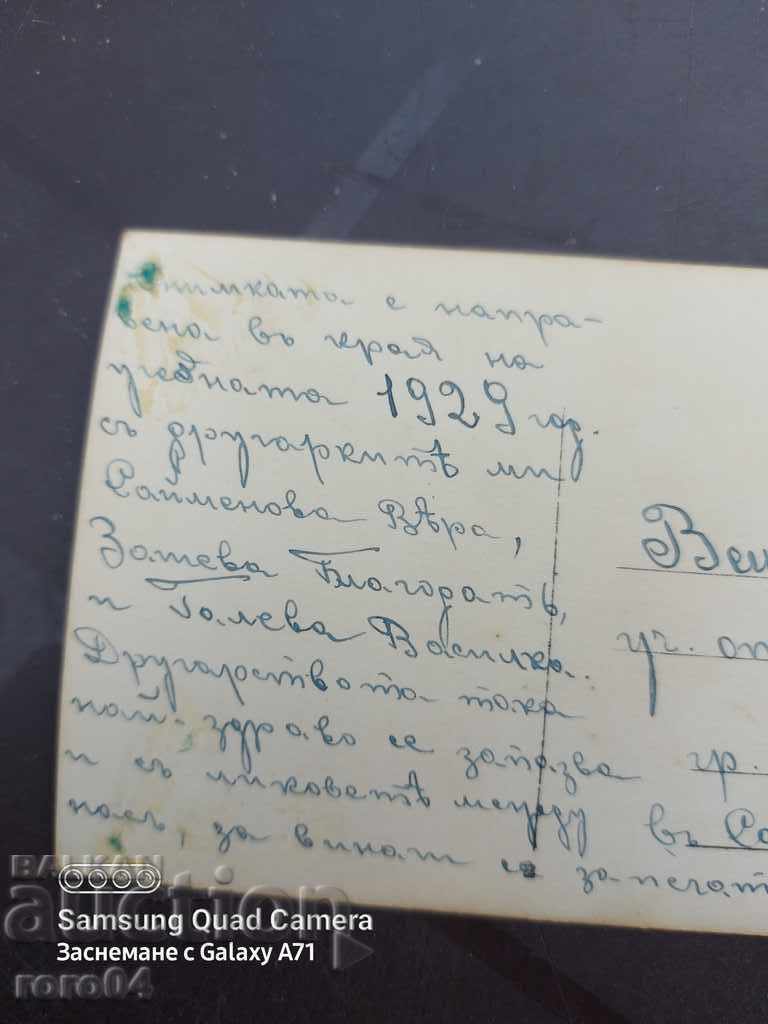 Снимката е напра-
вена въ края на
учебната 1929 год.
съ другаркитѣ ми
Сайменова Вѣра,
Затева Благодать,
и Галева Василка.
Другарството така
най-здраво се запазва
и съ ликоветѣ между
насъ, за винаги се запечат
Вел
уч. от
гр.
въ Со
БАЛКАН
auction
Samsung Quad Camera
Заснемане с Galaxy A71
roro04